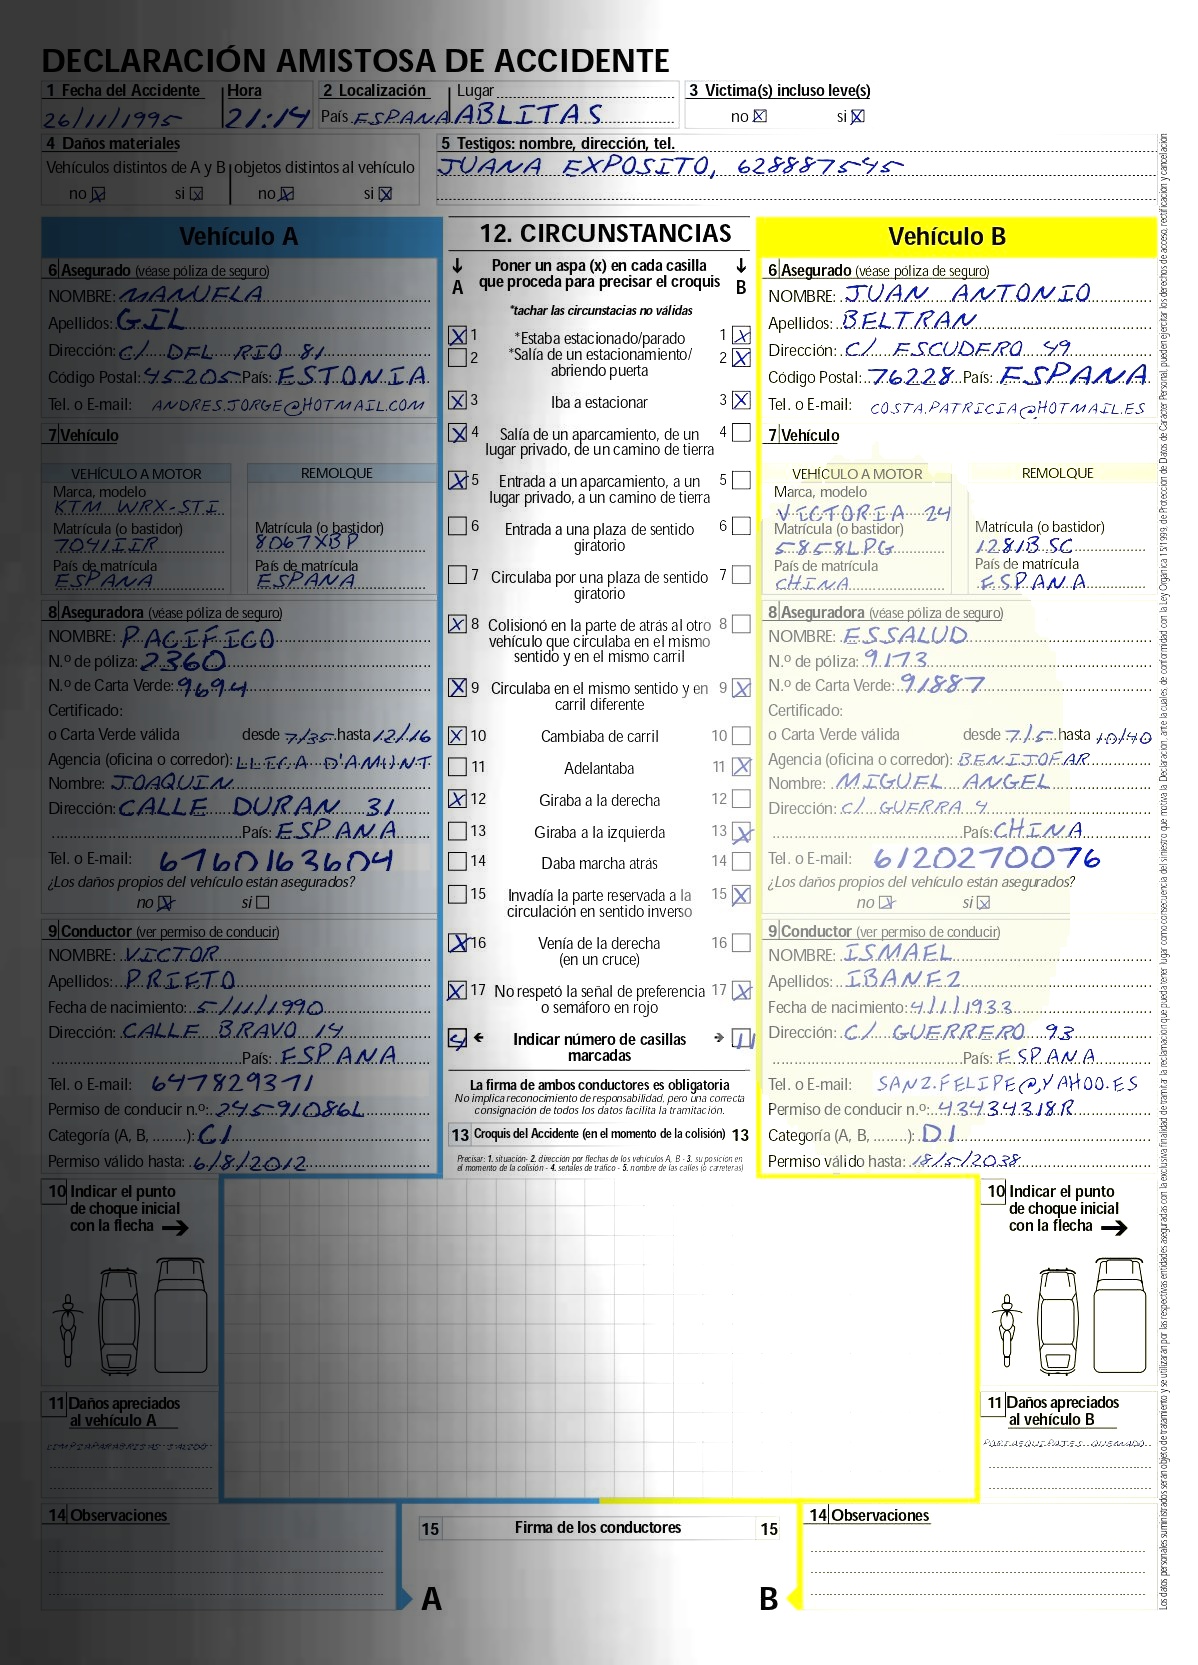 DECLARACIÓN AMISTOSA DE ACCIDENTE
1 Fecha del Accidente Hora 2 Localización Lugar 3 Victima(s) incluso leve(s)
26/11/1995 21:14 País ESPANA ABLITAS no si
4 Daños materiales 5 Testigos: nombre, dirección, tel.
Vehículos distintos de A y B objetos distintos al vehículo
JUANA EXPOSITO, 628887545
no si no si
Vehículo A
6 Asegurado (véase póliza de seguro)
NOMBRE: MANUELA
Apellidos: GIL
Dirección: C/ DEL RIO 81
Código Postal: 45205 País: ESTONIA
Tel. o E-mail: ANDRES.JORGE@HOTMAIL.COM
7 Vehículo
VEHÍCULO A MOTOR REMOLQUE
Marca, modelo
KTM WRX-STI
Matrícula (o bastidor) Matrícula (o bastidor)
7041IIR 8067XBP
País de matrícula País de matrícula
ESPANA ESPANA
8 Aseguradora (véase póliza de seguro)
NOMBRE: PACIFICO
N.º de póliza: 2360
N.º de Carta Verde: 9694
Certificado:
o Carta Verde válida desde 7/35 hasta 12/16
Agencia (oficina o corredor): LLICA D'AMUNT
Nombre: JOAQUIN
Dirección: CALLE DURAN 31
País: ESPANA
Tel. o E-mail: 6760163604
¿Los daños propios del vehículo están asegurados?
no si
9 Conductor (ver permiso de conducir)
NOMBRE: VICTOR
Apellidos: PRIETO
Fecha de nacimiento: 5/11/1990
Dirección: CALLE BRAVO 14
País: ESPANA
Tel. o E-mail: 647829371
Permiso de conducir n.º: 24591086L
Categoría (A, B, ........): C1
Permiso válido hasta: 6/8/2012
12. CIRCUNSTANCIAS
Poner un aspa (x) en cada casilla
A que proceda para precisar el croquis B
*tachar las circunstacias no válidas
1 *Estaba estacionado/parado 1
2 *Salía de un estacionamiento/ 2
abriendo puerta
3 Iba a estacionar 3
4 Salía de un aparcamiento, de un 4
lugar privado, de un camino de tierra
5 Entrada a un aparcamiento, a un 5
lugar privado, a un camino de tierra
6 Entrada a una plaza de sentido 6
giratorio
7 Circulaba por una plaza de sentido 7
giratorio
8 Colisionó en la parte de atrás al otro 8
vehículo que circulaba en el mismo
sentido y en el mismo carril
9 Circulaba en el mismo sentido y en 9
carril diferente
10 Cambiaba de carril 10
11 Adelantaba 11
12 Giraba a la derecha 12
13 Giraba a la izquierda 13
14 Daba marcha atrás 14
15 Invadía la parte reservada a la 15
circulación en sentido inverso
16 Venía de la derecha 16
(en un cruce)
17 No respetó la señal de preferencia 17
o semáforo en rojo
4 Indicar número de casillas 11
marcadas
La firma de ambos conductores es obligatoria
No implica reconocimiento de responsabilidad, pero una correcta
consignación de todos los datos facilita la tramitación.
13 Croquis del Accidente (en el momento de la colisión) 13
Precisar: 1. situación- 2. dirección por flechas de los vehículos A, B - 3. su posición en
el momento de la colisión - 4. señales de tráfico - 5. nombre de las calles (o carreteras)
Vehículo B
6 Asegurado (véase póliza de seguro)
NOMBRE: JUAN ANTONIO
Apellidos: BELTRAN
Dirección: C/ ESCUDERO 49
Código Postal: 76228 País: ESPANA
Tel. o E-mail: COSTA.PATRICIA@HOTMAIL.ES
7 Vehículo
VEHÍCULO A MOTOR REMOLQUE
Marca, modelo
VICTORIA 24
Matrícula (o bastidor) Matrícula (o bastidor)
5858LPG 1281BSC
País de matrícula País de matrícula
CHINA ESPANA
8 Aseguradora (véase póliza de seguro)
NOMBRE: ESSALUD
N.º de póliza: 9173
N.º de Carta Verde: 91887
Certificado:
o Carta Verde válida desde 7/5 hasta 10/40
Agencia (oficina o corredor): BENIJOFAR
Nombre: MIGUEL ANGEL
Dirección: C/ GUERRA 4
País: CHINA
Tel. o E-mail: 6120270076
¿Los daños propios del vehículo están asegurados?
no si
9 Conductor (ver permiso de conducir)
NOMBRE: ISMAEL
Apellidos: IBANEZ
Fecha de nacimiento: 4/1/1933
Dirección: C/ GUERRERO 93
País: ESPANA
Tel. o E-mail: SANZ.FELIPE@YAHOO.ES
Permiso de conducir n.º: 43434318R
Categoría (A, B, ........): D1
Permiso válido hasta: 18/5/2038
10 Indicar el punto
de choque inicial
con la flecha
11 Daños apreciados
al vehículo A
LIMPIAPARABRISAS SALIDO
14 Observaciones
10 Indicar el punto
de choque inicial
con la flecha
11 Daños apreciados
al vehículo B
PORTAEQUIPAJES QUEMADO
14 Observaciones
15 Firma de los conductores 15
A B
Los datos personales suministrados serán objeto de tratamiento y se utilizarán por las respectivas entidades aseguradas con la exclusiva finalidad de tramitar la reclamación que pueda tener lugar como consecuencia del siniestro que motiva la Declaración, ante la cuales, de conformidad con la Ley Orgánica 15/1999, de Protección de Datos de Carácter Personal, pueden ejercitar los derechos de acceso, rectificación y cancelación